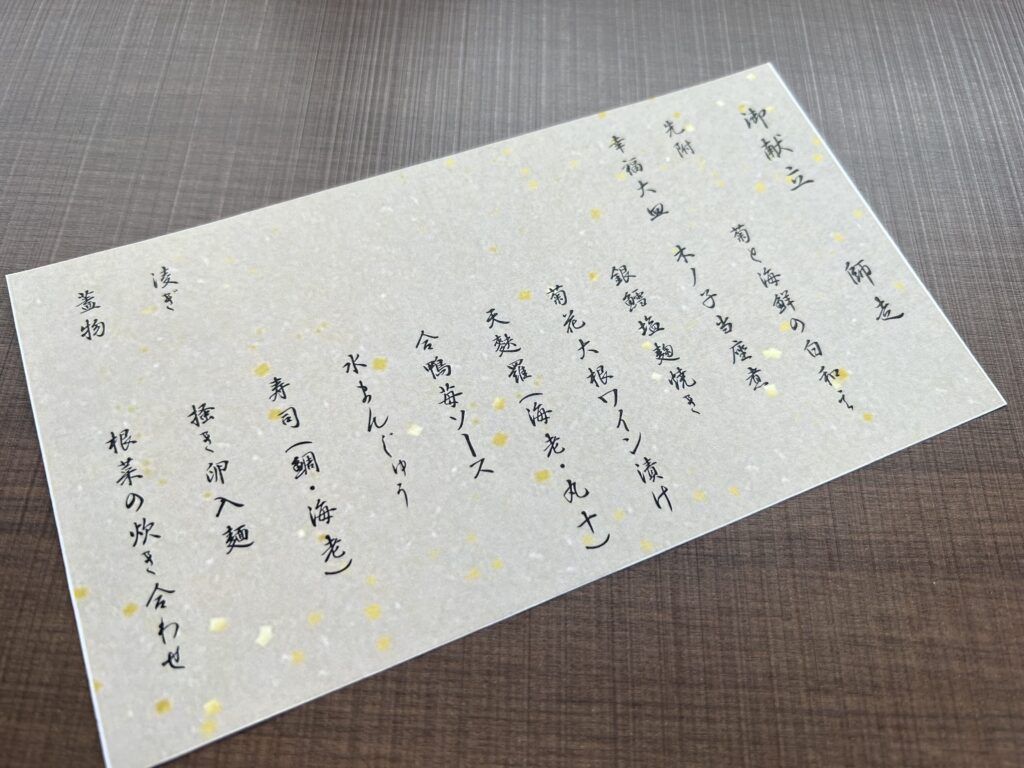 御献立
師走
先附
菊と海鮮の白和え
幸福大皿
木ノ子当座煮
銀鱈塩麹焼き
菊花大根ワイン漬け
天麩羅(海老・丸十)
合鴨苺ソース
水まんじゅう
寿司(鯛・海老)
凌ぎ
掻き卵入麺
蓋物
根菜の炊き合わせ